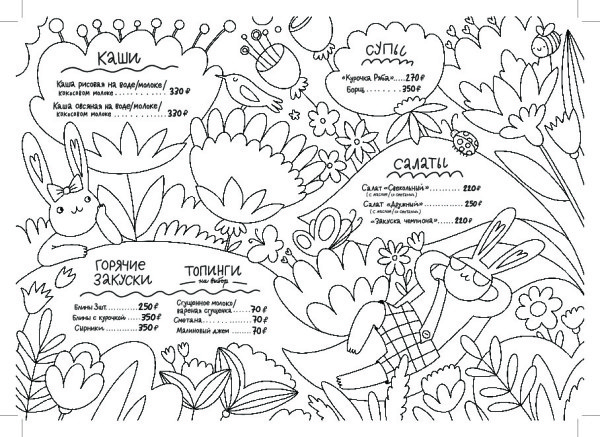 КАШИ
Каша рисовая на воде/молоке/
кокосовом молоке . . . . . . . . . . . 330 ₽
Каша овсяная на воде/молоке/
кокосовом молоке . . . . . . . . . . . 330 ₽
СУПЫ
«Курочка Ряба».....270 ₽
Борщ...............350 ₽
САЛАТЫ
Салат «Свекольный»............220 ₽
Салат «Дружный»..............250 ₽
«Закуска чемпиона»....220 ₽
ГОРЯЧИЕ
ЗАКУСКИ
Блины 3шт. ............250 ₽
Блины с курочкой......350 ₽
Сырники...............350 ₽
ТОПИНГИ
на выбор
Сгущенное молоко/
вареная сгущенка.....70 ₽
Сметана..............70 ₽
Малиновый джем....70 ₽